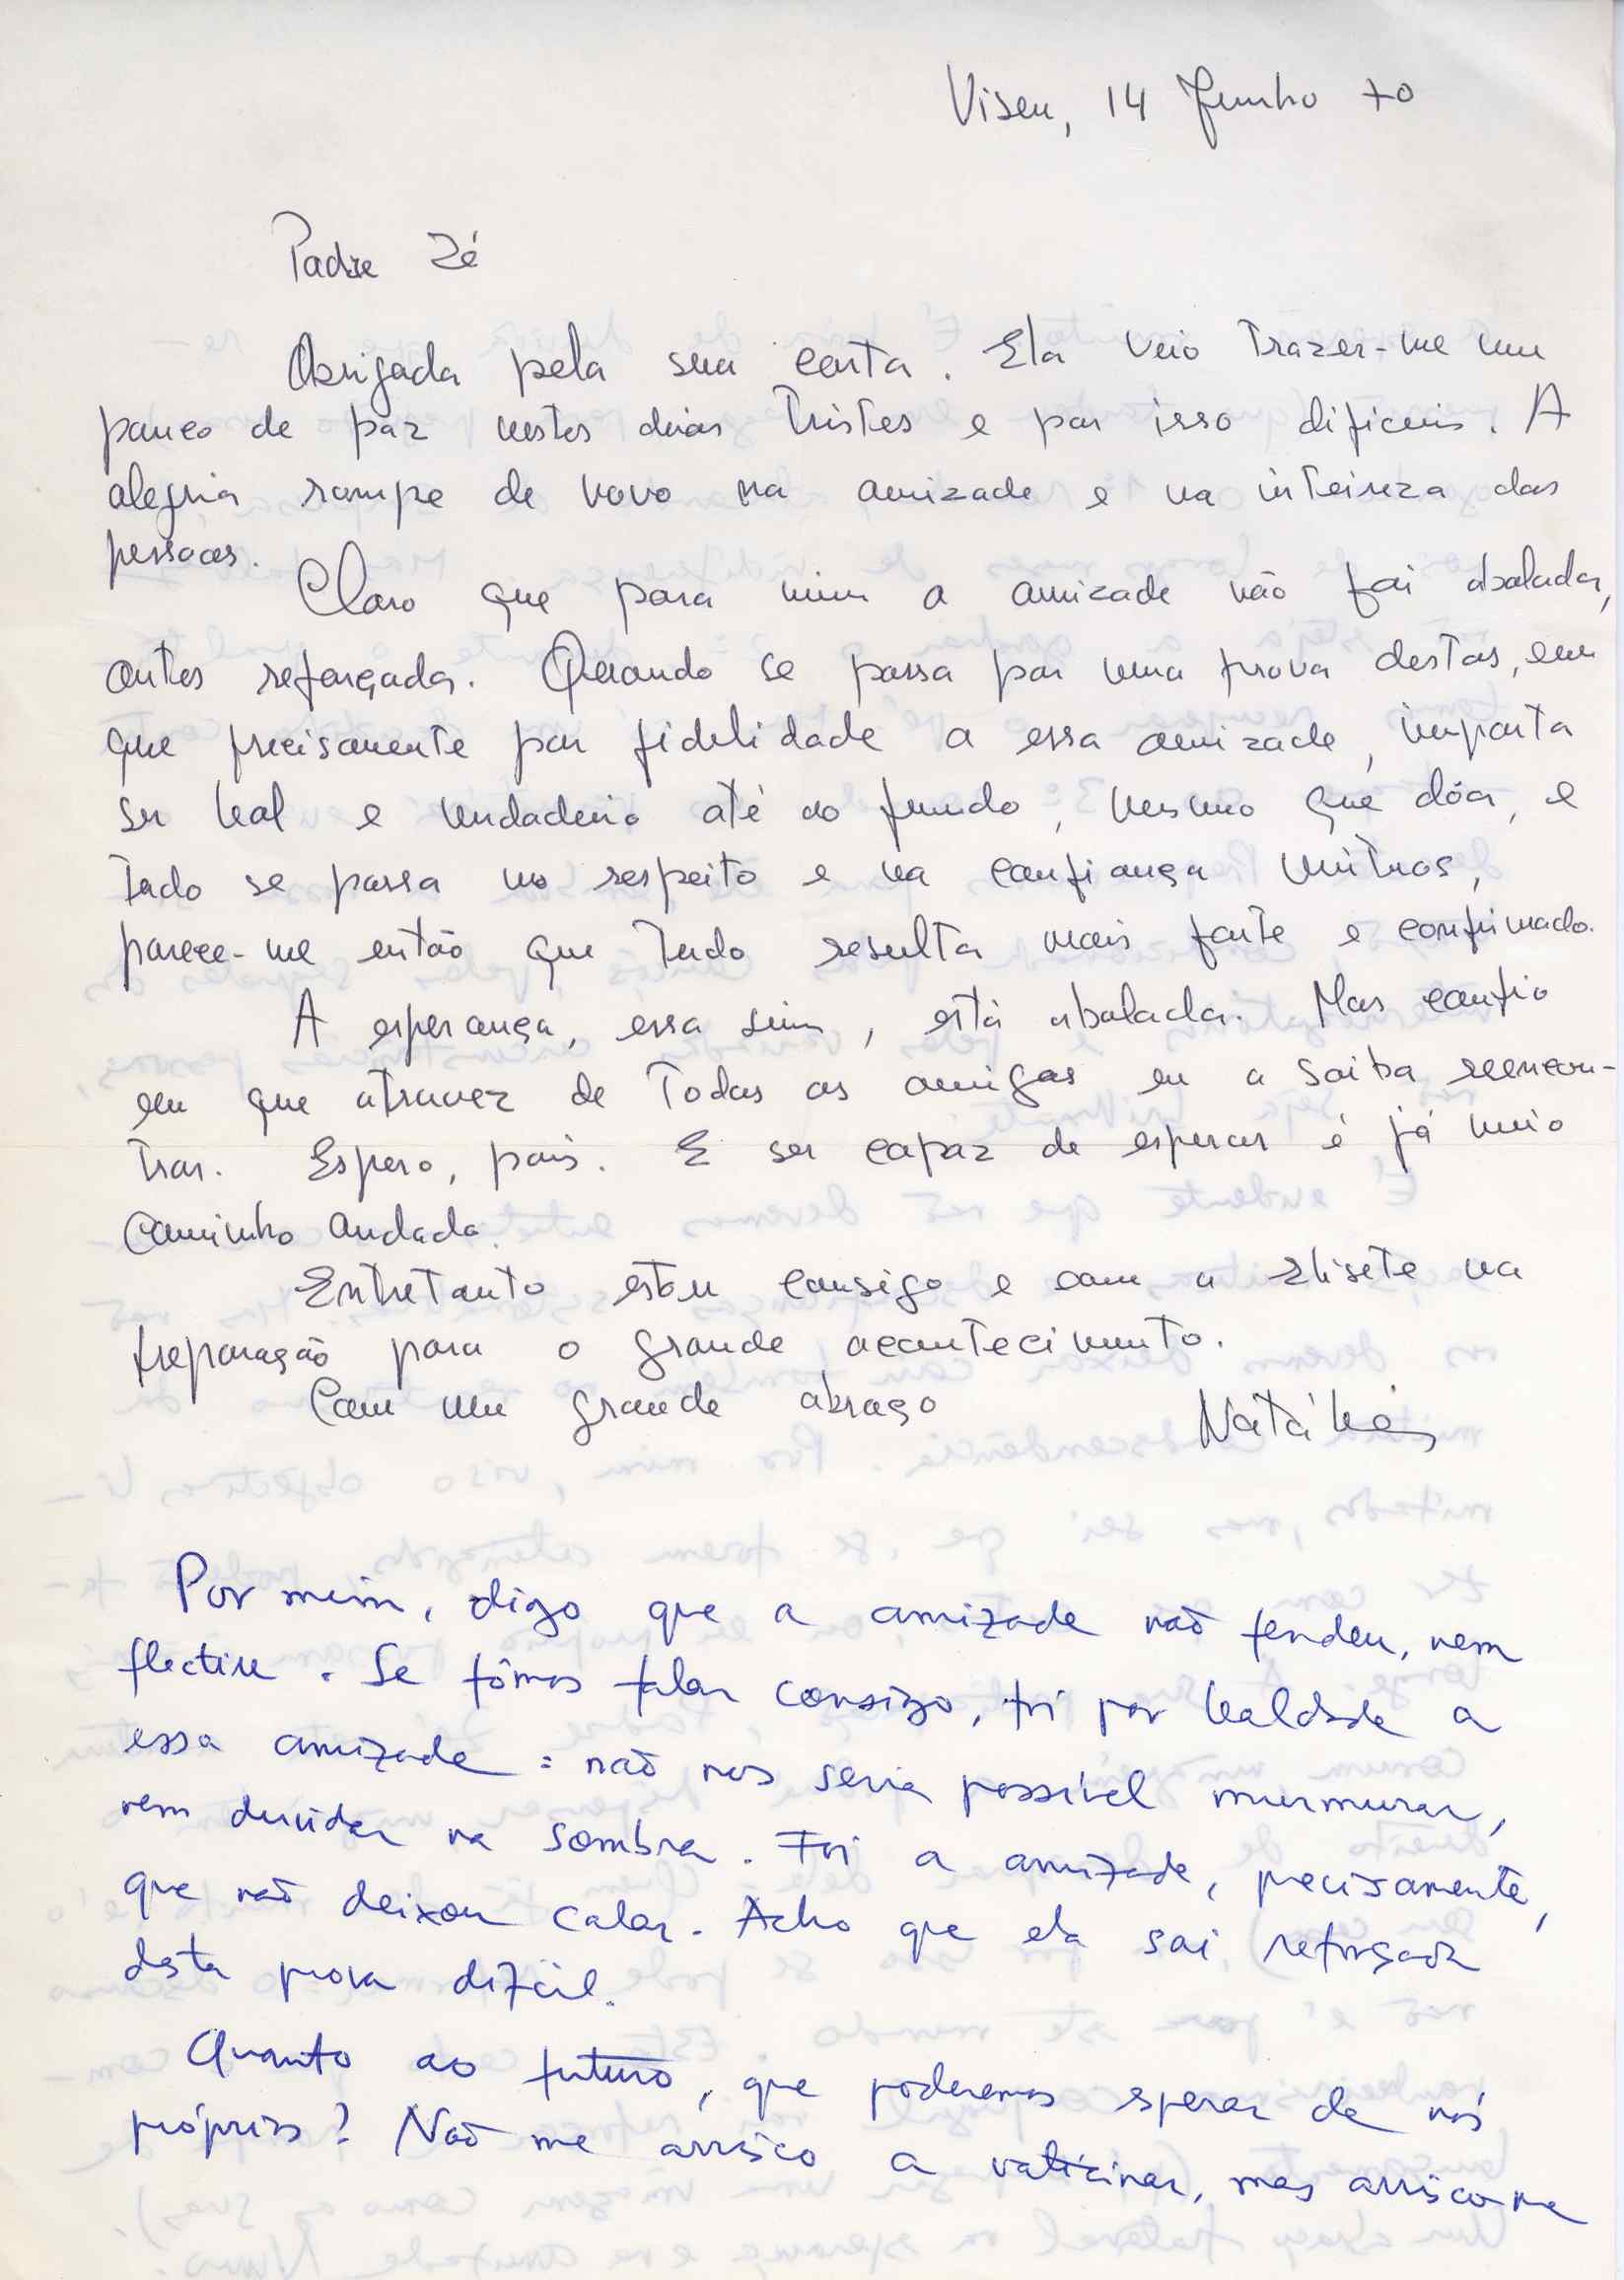 Viseu, 14 Junho 70
Padre Zé
Obrigada pela sua carta. Ela veio trazer-me um
pouco de paz nestes dias tristes e por isso dificeis. A
alegria rompe de novo na amizade e na inteireza das
pessoas.
Claro que para mim a amizade não foi abalada,
antes reforçada. Quando se passa por uma prova destas, em
que precisamente por fidelidade a essa amizade, importa
ser leal e verdadeiro até ao fundo, mesmo que dôa, e
tudo se passa no respeito e na confiança mútuos,
parece-me então que tudo resulta mais forte e confirmado.
A esperança, essa sim, está abalada. Mas confio
em que atravez de todos os amigos eu a saiba reencon-
trar. Espero, pois. E ser capaz de esperar é já meio
caminho andado.
Entretanto estou consigo e com a Elisete na
preparação para o grande acontecimento.
Com um grande abraço Natália
Por mim, digo que a amizade não fendeu, nem
flectiu. Se fômos falar consigo, foi por lealdade a
essa amizade: não nos seria possível murmurar,
nem duvidar na sombra. Foi a amizade, precisamente,
que não deixou calar. Acho que ela sai reforçada
desta prova difícil.
Quanto ao futuro, que poderemos esperar de nós
próprios? Não me arrisco a vaticinar, mas arrisco-me